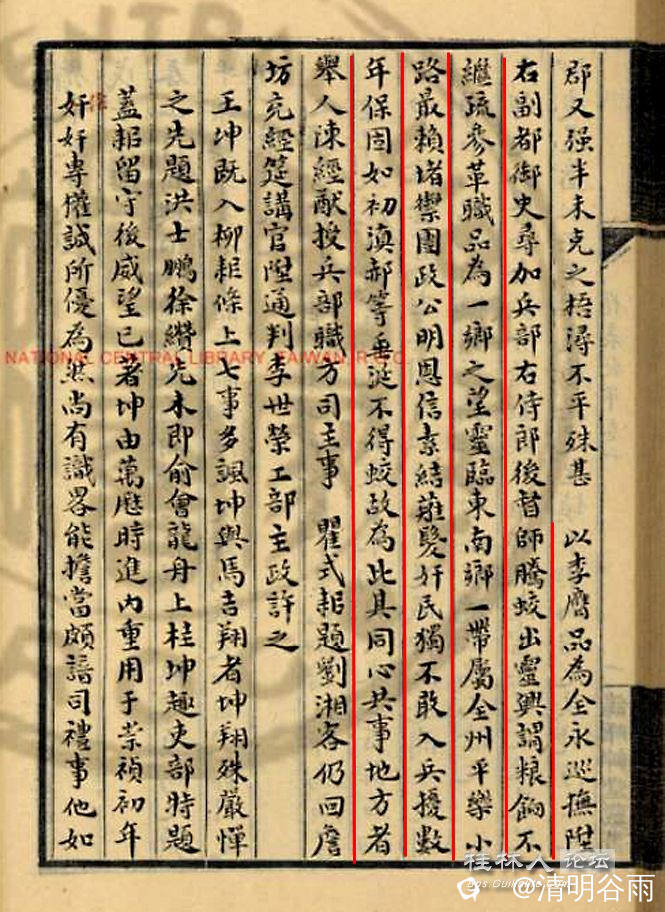 郡又强半未克之梧潯不平殊甚　以李膺品為全永巡撫陞
右副都御史尋加兵部右侍郎後督師騰蛟出靈興謂粮餉不
繼疏參革職品為一鄉之望靈臨東南鄉一帶屬全州平樂小
路最賴堵禦團政公明恩信素結薙髮奸民獨不敢入兵擾數
年保固如初滇郝等垂涎不得蛟故為此具同心共事地方者
舉人陳經猷授兵部職方司主事　瞿式耜題劉湘客仍回詹
坊充經筵講官陞通判李世榮工部主政許之
王坤既入柳耜條上七事多諷坤與馬吉翔者坤翔殊嚴憚
之先題洪士鵬徐纘先本即俞會龍舟上桂坤趣吏部特題
蓋耜留守後威望已著坤由萬曆時進內重用于崇禎初年
奸奸專權誠所優為然尚有識畧能擔當頗諳司禮事他如
NATIONAL CENTRAL LIBRARY, TAIWAN, R.O.C.
桂林人论坛
Bbs.Guilinlife.Com
@清明谷雨